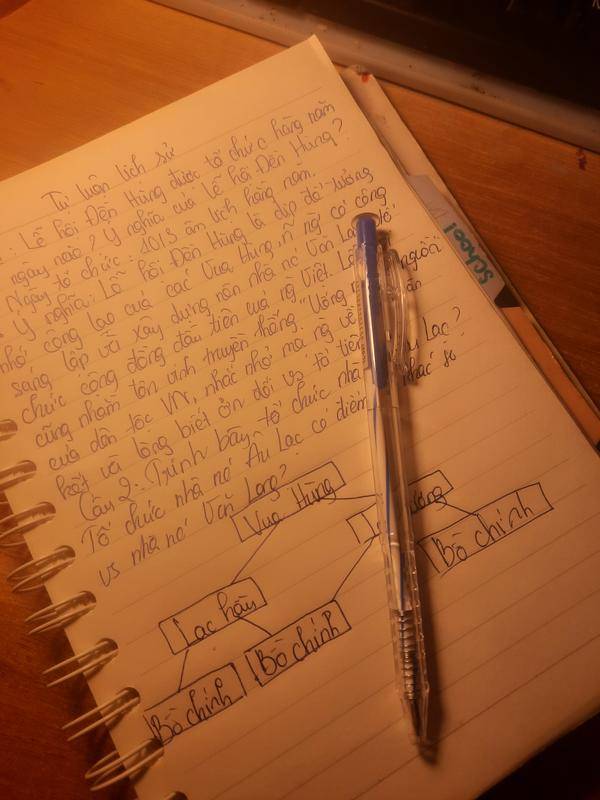 Tự luận lịch sử
: Lễ hội Đền Hùng được tổ chức hằng năm
ngày nào? Ý nghĩa của Lễ hội Đền Hùng?
Ngày tổ chức: 10/3 âm lịch hằng năm.
Ý nghĩa: Lễ hội Đền Hùng là dịp để tưởng
nhớ công lao của các Vua Hùng, n ng có công
sáng lập và xây dựng nên nhà nc Văn Lang, tổ
chức cộng đồng đầu tiên của ng Việt. Lễ
cũng nhằm tôn vinh truyền thống "Uống
của dân tộc VN, nhắc nhở mọi ng về
kết và lòng biết ơn đối vs tổ tiên
Câu 2: Trình bày tổ chức nhà Âu Lạc?
Tổ chức nhà nc Âu Lạc có điểm
vs nhà nc Văn Lang?
Vua Hùng
Bồ chính
Lạc hầu
Bồ chính
Bồ chính
school